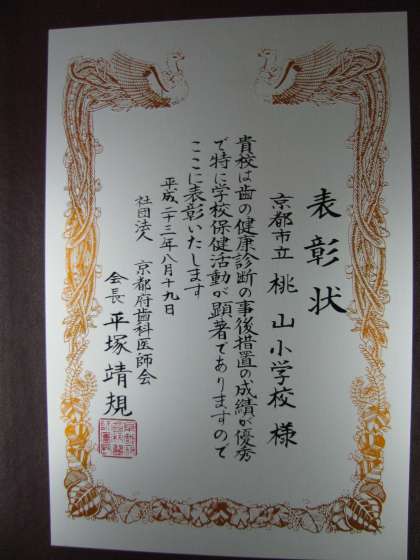 表彰状
京都市立 桃山小学校 様
貴校は歯の健康診断の事後措置の成績が優秀
で特に学校保健活動が顕著でありますので
ここに表彰いたします
平成二十三年八月十九日
社団法人 京都府歯科医師会
会長 平塚靖規